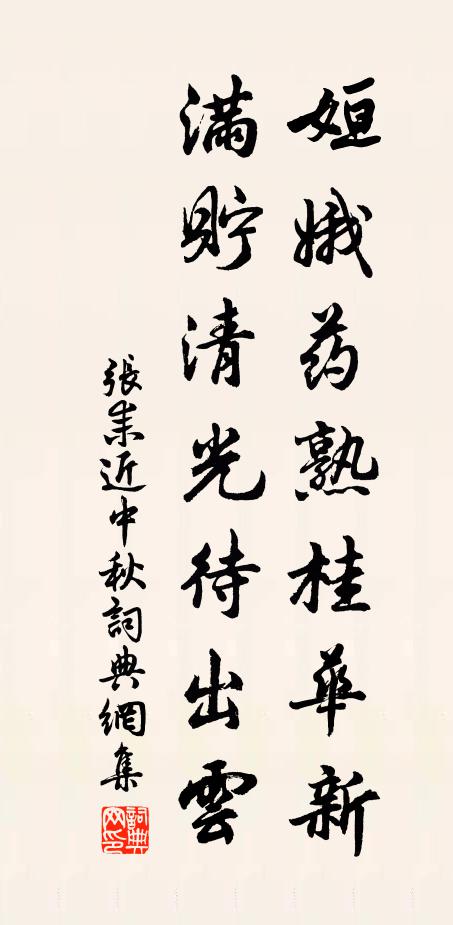 姮娥药熟桂華新
滿貯清光待出雲
張耒近中秋詞典網集
詞典网印